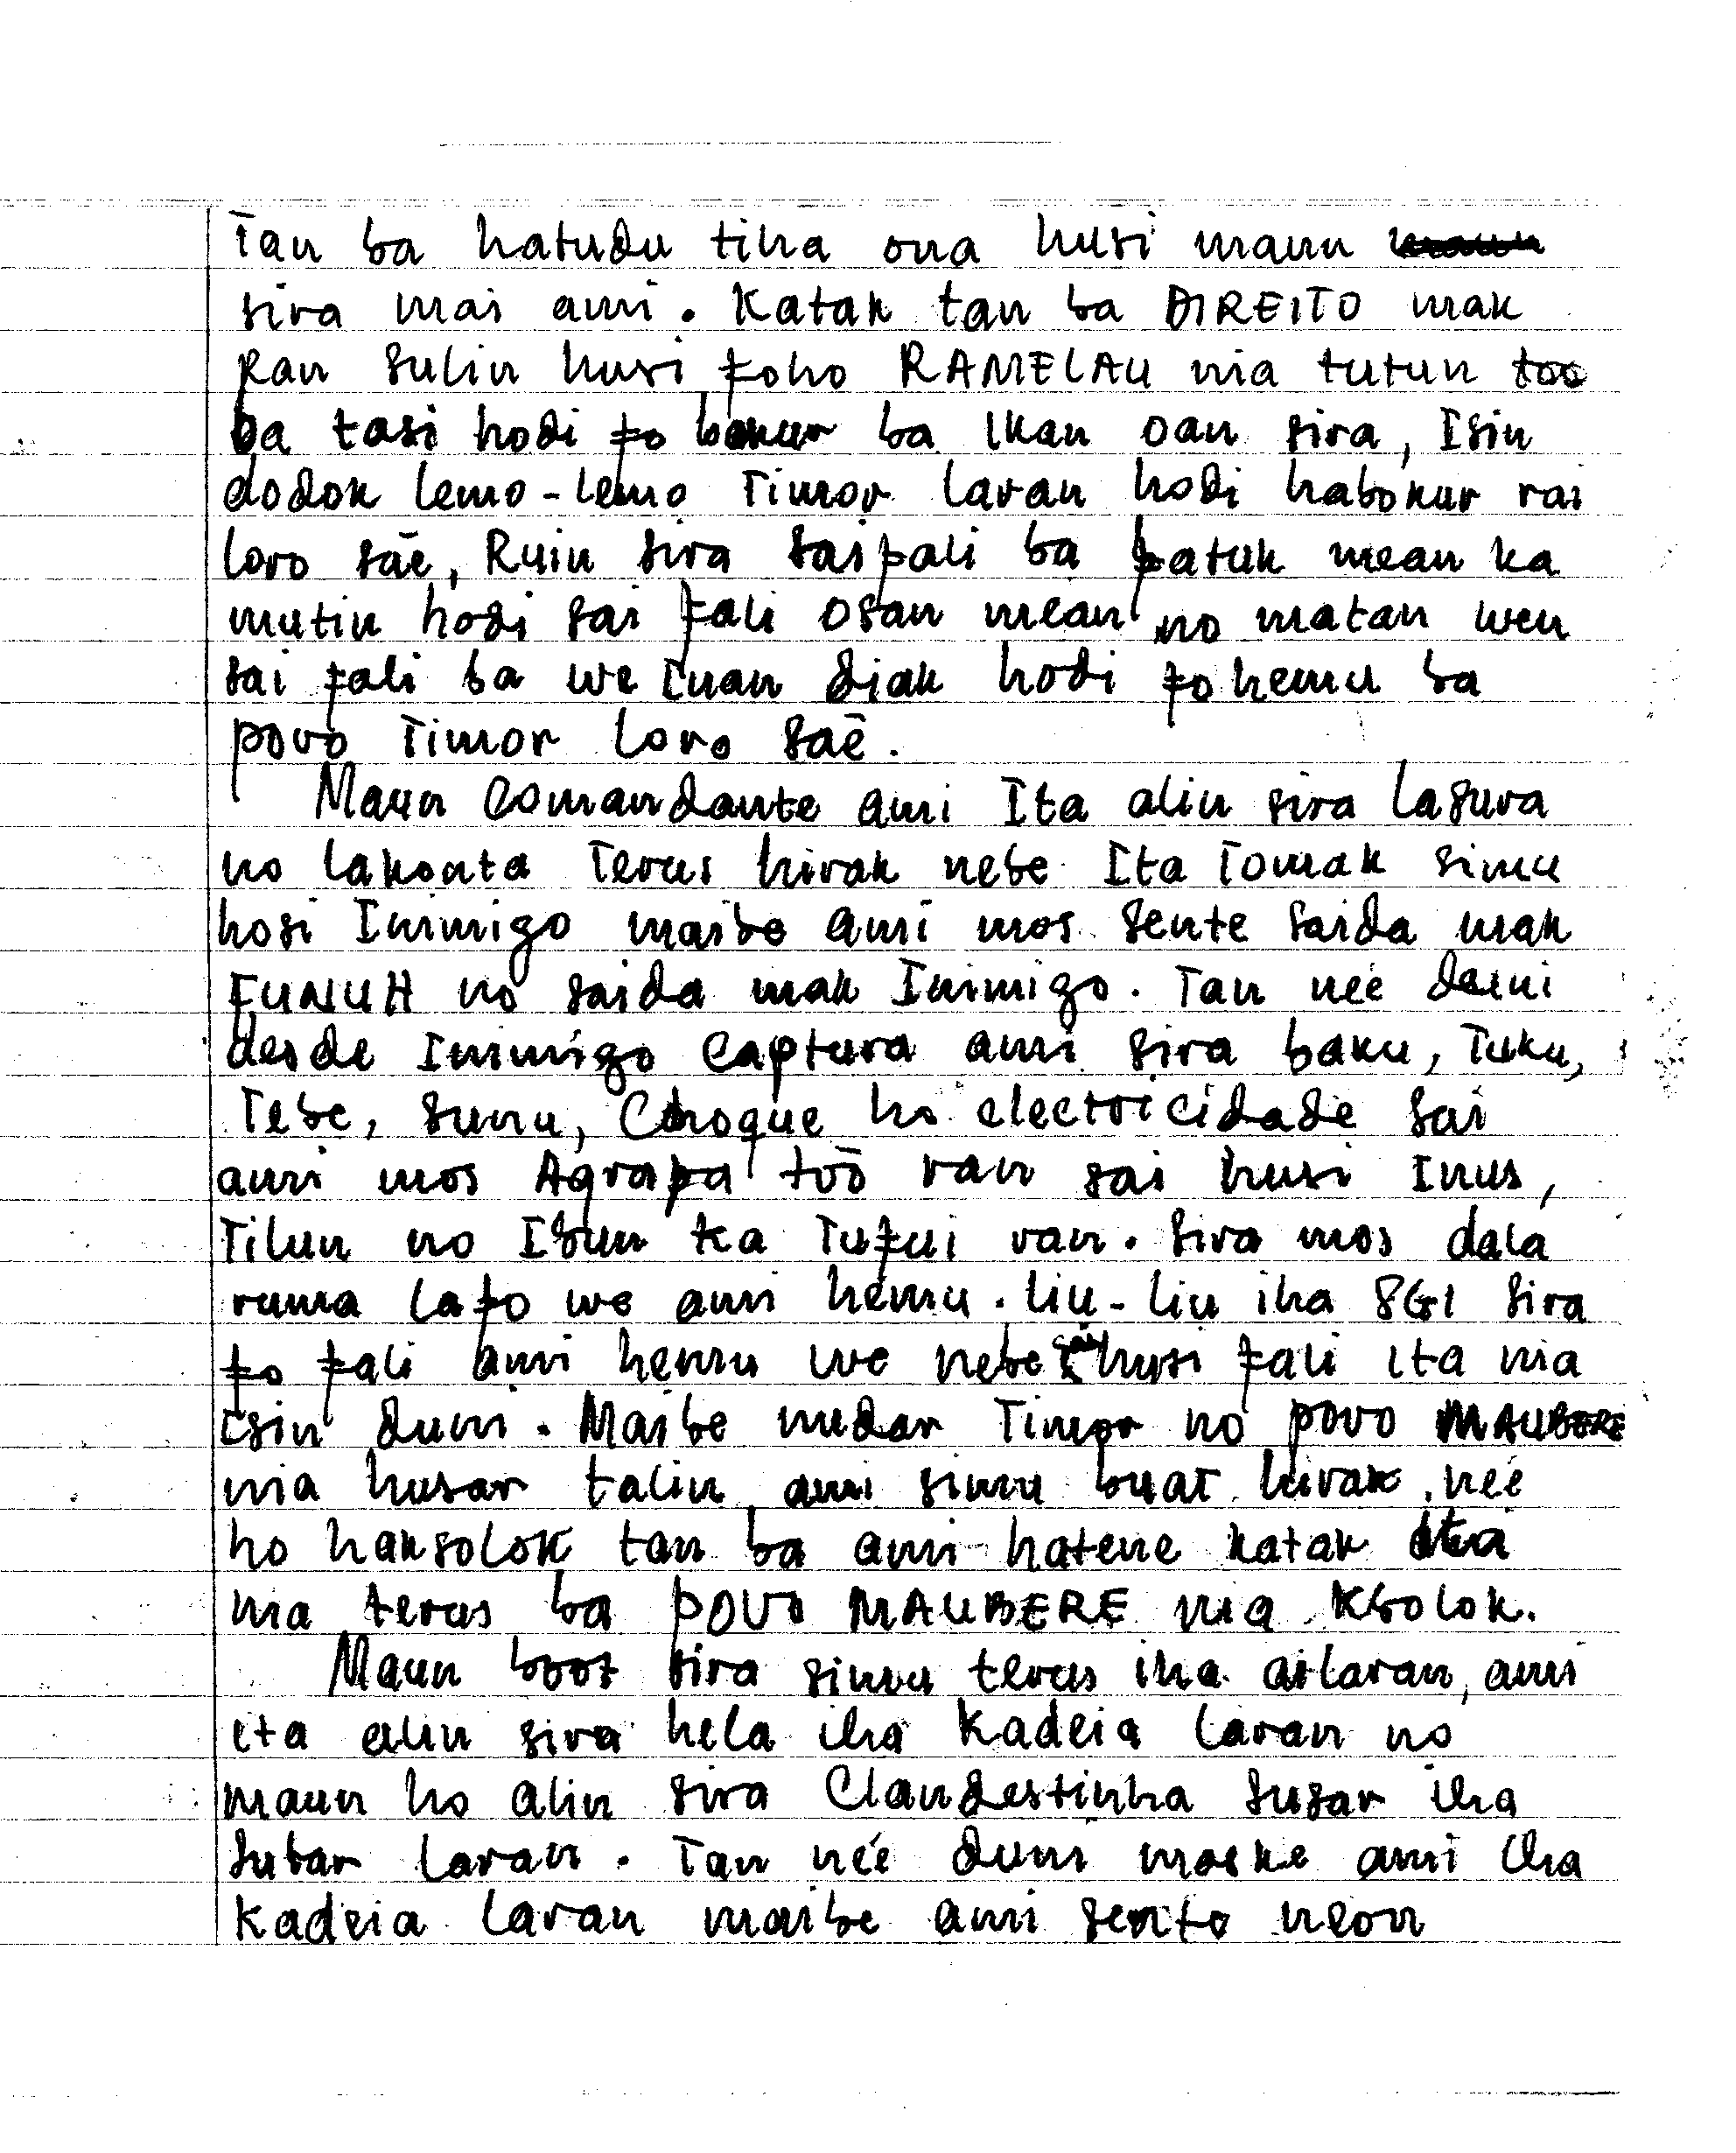 Tan ba hatudu tiha ona husi maun
sira mai ami. Katak tan ba DIREITO mak
Ran sulin husi foho RAMELAU nia tutun too
ba tasi hodi fo bokur ba Ikan oan sira, Isin
dodok lemo-lemo Timor laran hodi habokur rai
loro saē, Ruin sira sai fali ba fatuk mean ka
mutin hodi sai fali osan mean no matan wen
sai fali ba we Tuan diak hodi fo hemu ba
povo Timor loro saē.
Maun Comandante ami Ita alin sira lasura
no lakonta Terus hirak nebe Ita Tomak simu
hosi Inimigo maibe ami mos sente saida mak
FUNUH no saida mak Inimigo. Tan neé deini
desde Inimigo Captura ami sira baku, Tuku,
Tebe, sunu, Choque ho electricidade sai
ami mos Agrapa toō ran sai husi Inus,
Tilun no Ibun ka Tufui ran. Sira mos dala
ruma lafo we ami hemu. liu-liu iha SGI sira
fo fali ami hemu we nebe sai husi fali ita nia
Isin duni. Maibe nudar Timor no povo MAUBERE
nia husar talin ami simu buat hirak neé
ho haksolok tan ba ami hatene katak ita
nia terus ba POVO MAUBERE nia Ksolok.
Maun boot sira simu terus iha ailaran, ami
ita alin sira hela iha Kadeia laran no
maun ho alin sira Clandestinha susar iha
subar laran. Tan neé duni moske ami iha
Kadeia laran maibe ami sente neon